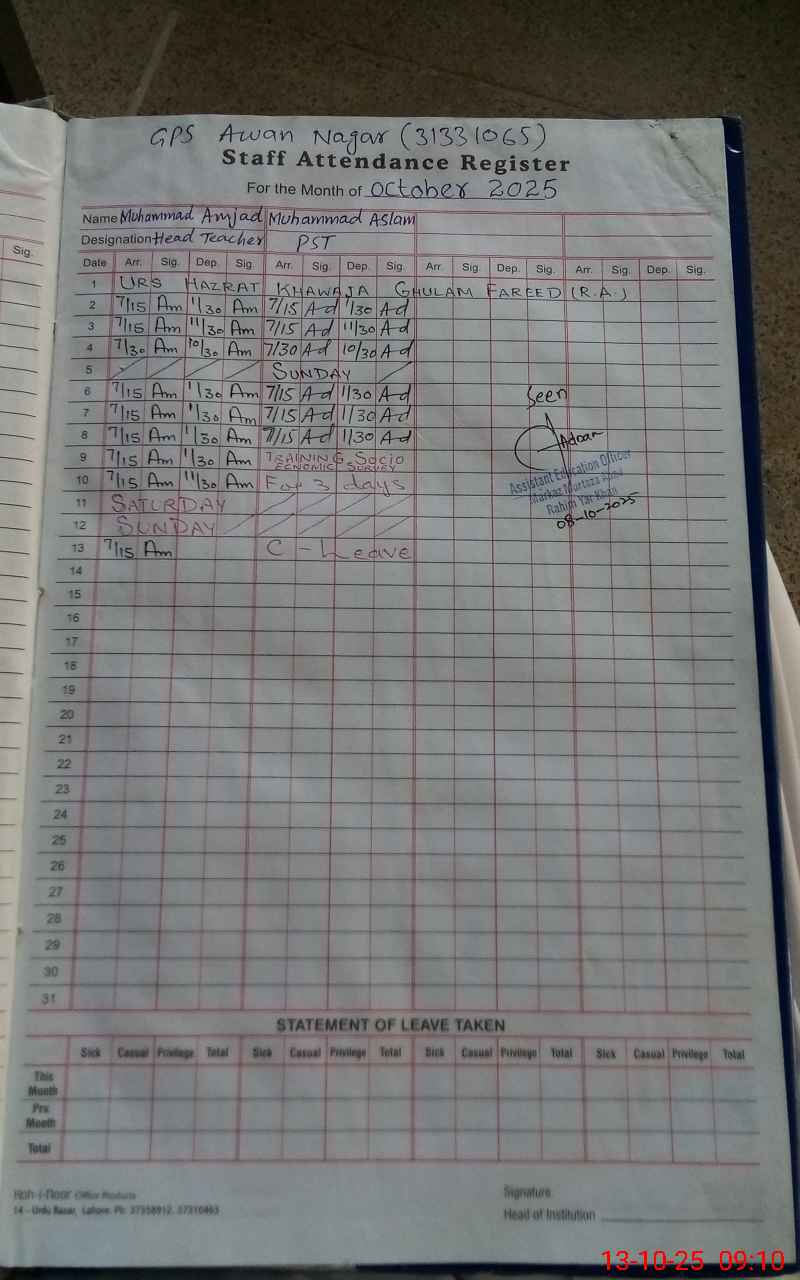 Sig.
GPS Awan Nagar (31331065)
Staff Attendance Register
For the Month of October 2025
Name Muhammad Amjad Muhammad Aslam
Designation Head Teacher PST
Date Arr. Sig. Dep. Sig. Arr. Sig. Dep. Sig. Arr. Sig. Dep. Sig. Arr. Sig. Dep. Sig.
1 URS HAZRAT KHAWAJA GHULAM FAREED (R.A.)
2 7/15 Am 11/30 Am 7/15 A-d 1/30 A-d
3 7/15 Am 11/30 Am 7/15 A-d 11/30 A-d
4 7/30 Am 10/30 Am 7/30 A-d 10/30 A-d
5 SUNDAY
6 7/15 Am 11/30 Am 7/15 A-d 1/30 A-d Seen
7 7/15 Am 11/30 Am 7/15 A-d 1/30 A-d
8 7/15 Am 11/30 Am 7/15 A-d 1/30 A-d Adnan
9 7/15 Am 11/30 Am TRAINING Socio
ECONOMIC SURVEY
10 7/15 Am 11/30 Am For 3 days
Assistant Education Officer
Markaz Murtaza Abad
Rahim Yar Khan
08-10-2025
11 SATURDAY
12 SUNDAY
13 7/15 Am C - Leave
14
15
16
17
18
19
20
21
22
23
24
25
26
27
28
29
30
31
STATEMENT OF LEAVE TAKEN
Sick Casual Privilege Total Sick Casual Privilege Total Sick Casual Privilege Total Sick Casual Privilege Total
This
Month
Prv
Month
Total
Koh-i-Noor Office Products
14 - Urdu Bazar, Lahore. Ph: 37358912, 37310463
Signature
Head of Institution
13-10-25 09:10